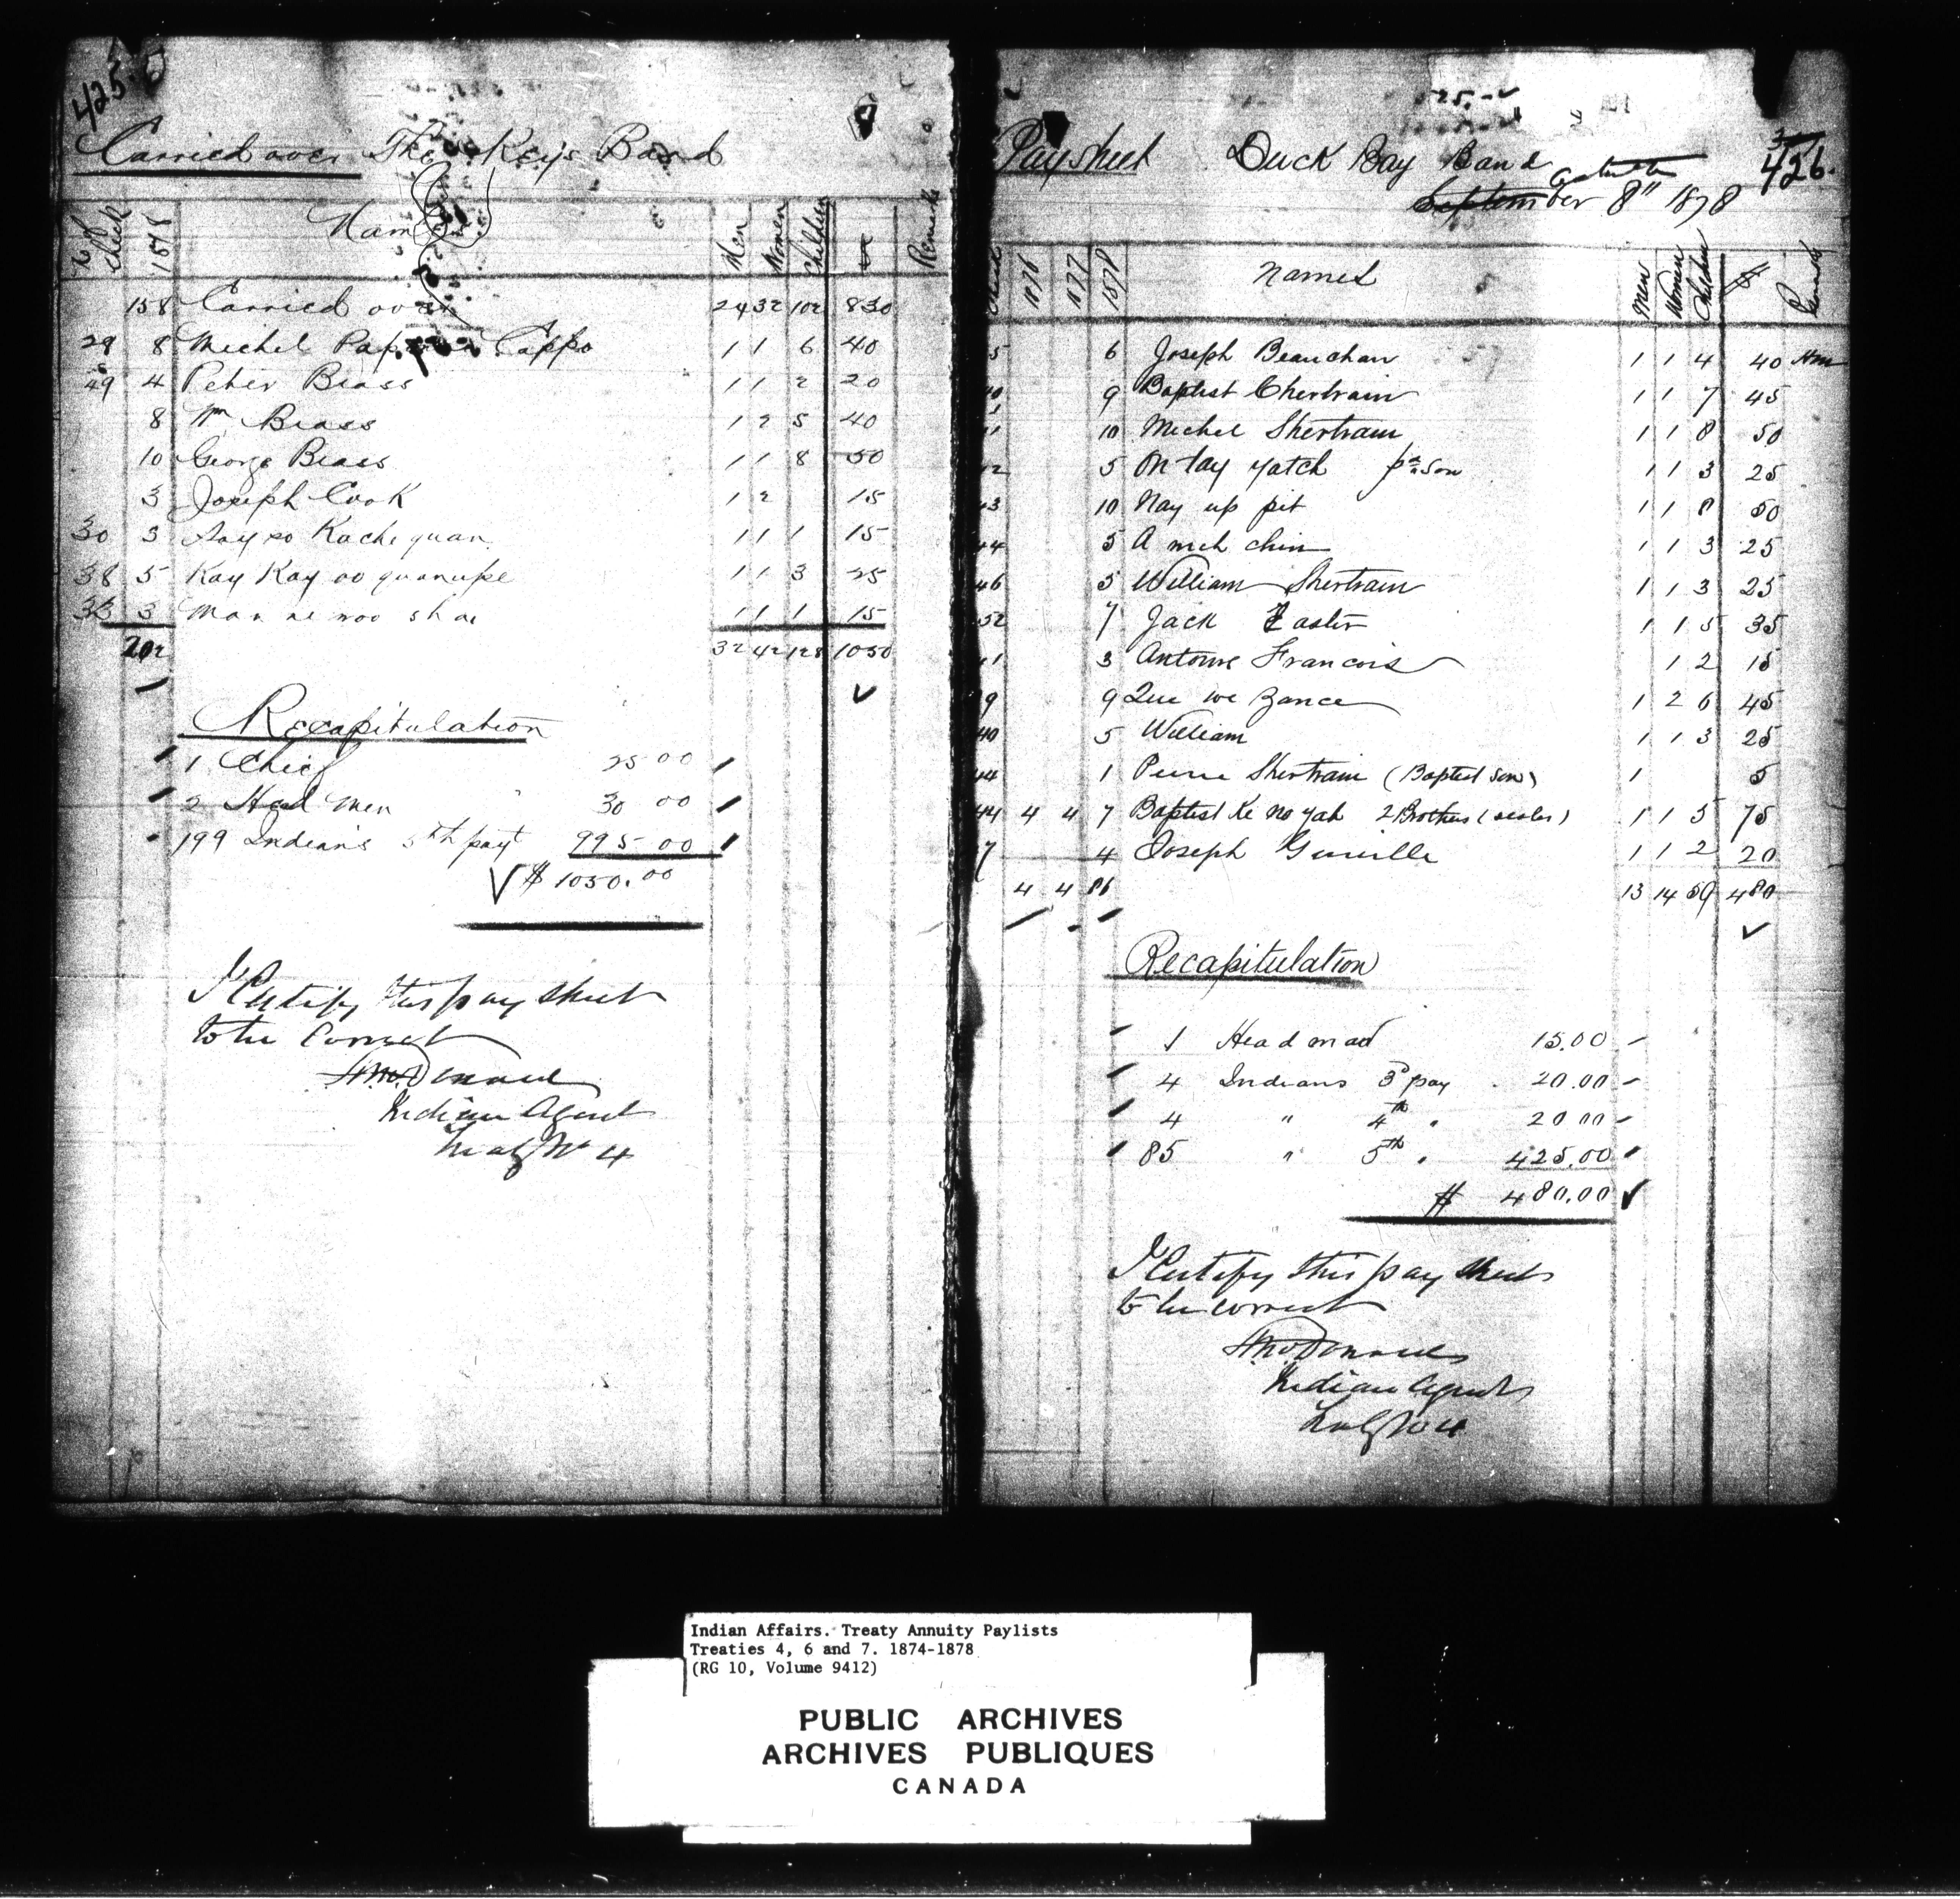 425
Carried over The Keys Band
No of Check 1878 Names Men Women Children $ Remarks
158 Carried over 24 32 102 830
29 8 Michel Cappo 1 1 6 40
49 4 Peter Brass 1 1 2 20
8 Wm Brass 1 2 5 40
10 George Brass 1 1 8 50
3 Joseph Cook 1 2 15
30 3 Say so Kache quan 1 1 1 15
38 5 Kay Kay oo quanupe 1 1 3 25
33 3 Man ne woo sh ae 1 1 1 15
202 32 42 128 1050
Recapitulation
1 Chief 25 00
2 Head men 30 00
199 Indians 5th payt 995 00
$ 1050.00
I Certify this pay sheet
to be Correct
A McDonald
Indian Agent
Treaty No 4
426.
Paysheet Duck Bay Band
September October 8" 1878
Check 1876 1877 1878 Names Men Women Children $ Remarks
5 6 Joseph Beauchan 1 1 4 40 Hm
40 9 Baptist Chertrain 1 1 7 45
41 10 Michel Shertrain 1 1 8 50
42 5 On tay yatch pr son 1 1 3 25
43 10 Nay up pit 1 1 8 50
44 5 A meh chin 1 1 3 25
46 5 William Shertrain 1 1 3 25
52 7 Jack Easter 1 1 5 35
41 3 Antoine Francois 1 2 15
9 9 Que we zance 1 2 6 45
40 5 William 1 1 3 25
44 1 Pierre Shertrain (Baptist son) 1 5
44 4 4 7 Baptist Ke no yah 2 Brothers (sister) 1 1 5 75
7 4 Joseph Genville 1 1 2 20
4 4 86 13 14 59 480
Recapitulation
1 Head man 15.00
4 Indians 3d pay 20.00
4 " 4th " 20 00
85 " 5th " 425.00
$ 480.00
I Certify this pay sheet
to be correct
A McDonald
Indian Agent
Treaty No 4
Indian Affairs. Treaty Annuity Paylists
Treaties 4, 6 and 7. 1874-1878
(RG 10, Volume 9412)
PUBLIC ARCHIVES
ARCHIVES PUBLIQUES
CANADA